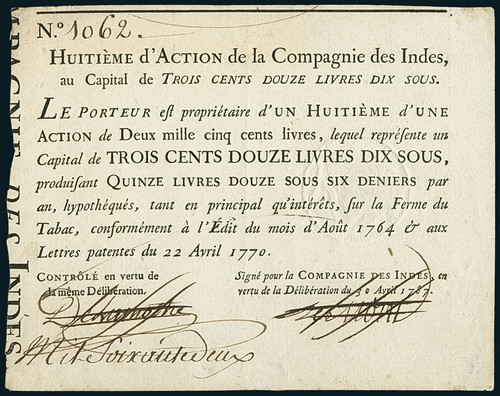 N.º 1062.
HUITIÈME d'ACTION de la Compagnie des Indes,
au Capital de TROIS CENTS DOUZE LIVRES DIX SOUS.
LE PORTEUR est propriétaire d'UN HUITIÈME d'UNE
ACTION de Deux mille cinq cents livres, lequel représente un
Capital de TROIS CENTS DOUZE LIVRES DIX SOUS,
produisant QUINZE LIVRES DOUZE SOUS SIX DENIERS par
an, hypothéqués, tant en principal qu'intérêts, sur la Ferme du
Tabac, conformément à l'Édit du mois d'Août 1764 & aux
Lettres patentes du 22 Avril 1770.
CONTRÔLÉ en vertu de
la même Délibération.
Signé pour la COMPAGNIE DES INDES, en
vertu de la Délibération du 30 Avril 1787.
Mil Soixante deux
PAGNIE DES INDES